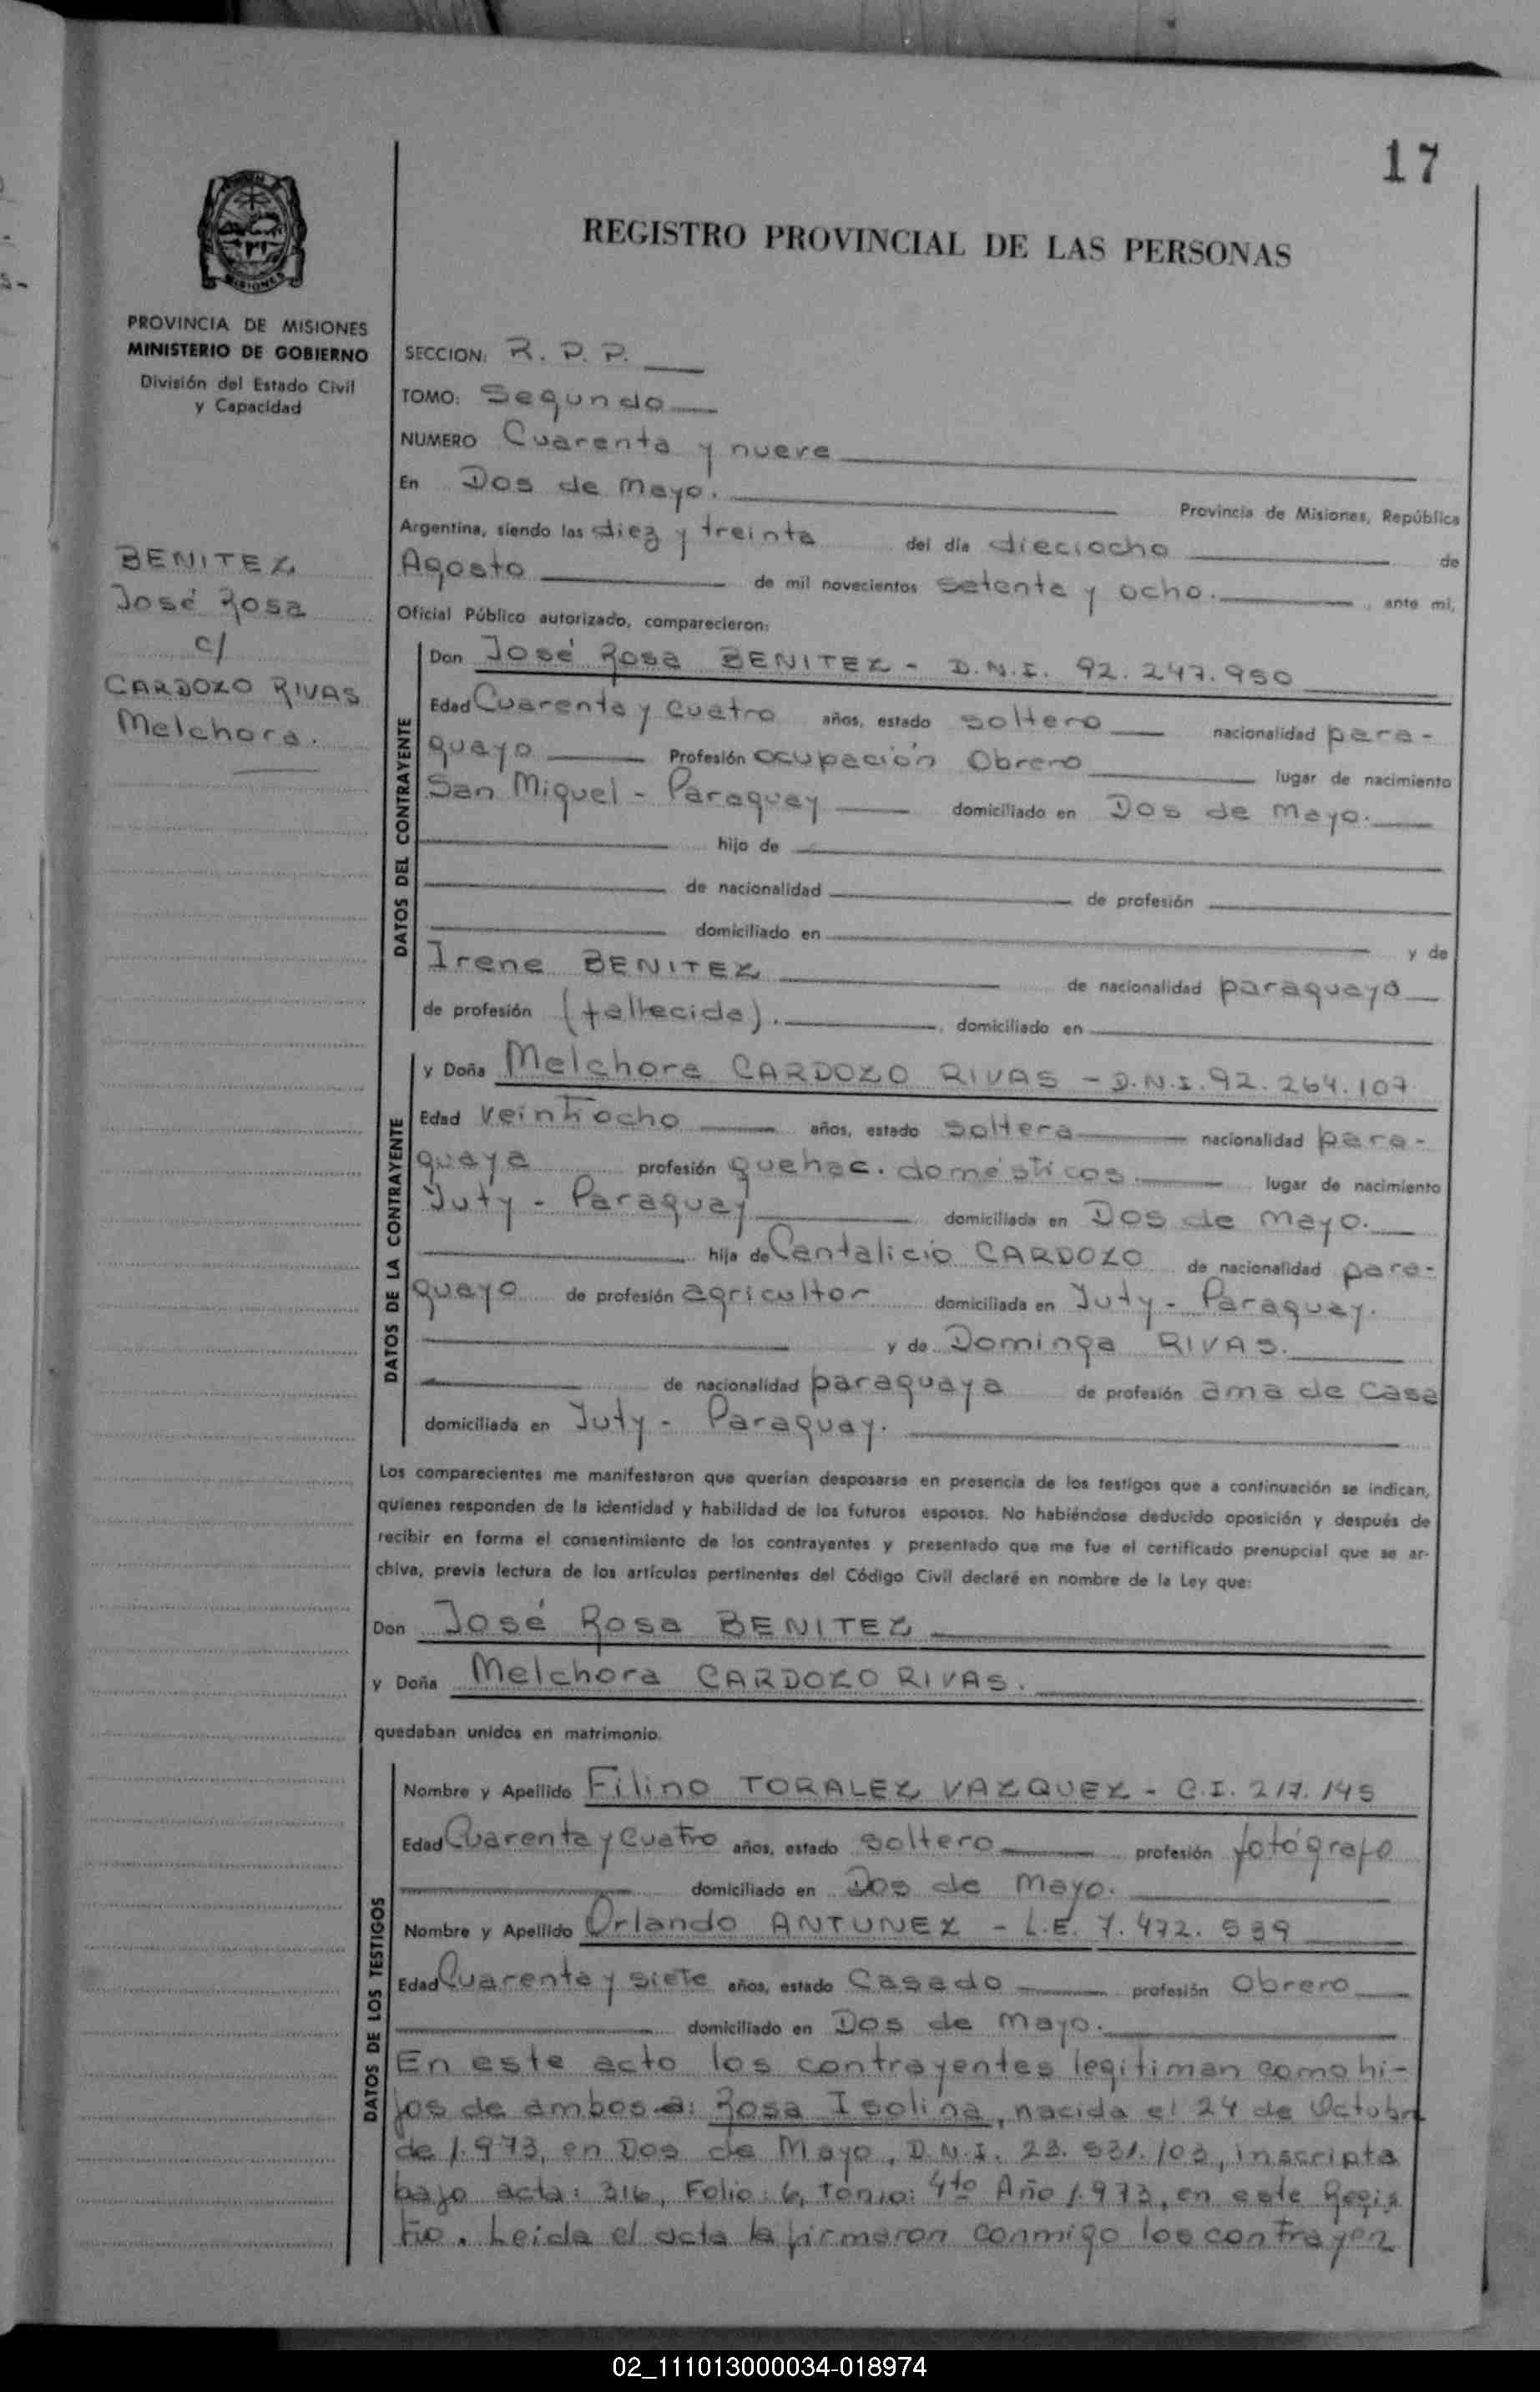 17
REGISTRO PROVINCIAL DE LAS PERSONAS
MISIONES
PROVINCIA DE MISIONES
MINISTERIO DE GOBIERNO
División del Estado Civil
y Capacidad
BENITEZ
José Rosa
c/
CARDOZO RIVAS
Melchora.
SECCION: R. P. P.
TOMO: Segundo
NUMERO Cuarenta y nueve
En Dos de Mayo. Provincia de Misiones, República
Argentina, siendo las diez y treinta del día dieciocho de
Agosto de mil novecientos setenta y ocho. , ante mi,
Oficial Público autorizado, comparecieron:
DATOS DEL CONTRAYENTE
Don José Rosa BENITEZ - D.N.I. 92.247.950
Edad Cuarenta y cuatro años, estado soltero nacionalidad para-
guayo Profesión ocupación Obrero lugar de nacimiento
San Miguel - Paraguay domiciliado en Dos de Mayo.
hijo de
de nacionalidad de profesión
domiciliado en y de
Irene BENITEZ de nacionalidad paraguayo
de profesión (fallecida). , domiciliado en
DATOS DE LA CONTRAYENTE
y Doña Melchora CARDOZO RIVAS - D.N.I. 92.264.107
Edad veintiocho años, estado soltera nacionalidad para-
guaya profesión quehac. domésticos. lugar de nacimiento
Yuty - Paraguay domiciliada en Dos de Mayo.
hija de Cantalicio CARDOZO de nacionalidad para-
guayo de profesión agricultor domiciliada en Yuty - Paraguay.
y de Dominga RIVAS.
de nacionalidad paraguaya de profesión ama de casa
domiciliada en Yuty - Paraguay.
Los comparecientes me manifestaron que querían desposarse en presencia de los testigos que a continuación se indican,
quienes responden de la identidad y habilidad de los futuros esposos. No habiéndose deducido oposición y después de
recibir en forma el consentimiento de los contrayentes y presentado que me fue el certificado prenupcial que se ar-
chiva, previa lectura de los artículos pertinentes del Código Civil declaré en nombre de la Ley que:
Don José Rosa BENITEZ
y Doña Melchora CARDOZO RIVAS.
quedaban unidos en matrimonio.
DATOS DE LOS TESTIGOS
Nombre y Apellido Filino TORALEZ VAZQUEZ - C.I. 217.145
Edad Cuarenta y cuatro años, estado soltero profesión fotógrafo
domiciliado en Dos de Mayo.
Nombre y Apellido Orlando ANTUNEZ - L.E. 7.472.539
Edad Cuarenta y siete años, estado Casado profesión Obrero
domiciliado en Dos de Mayo.
En este acto los contrayentes legitiman como hi-
jos de ambos a: Rosa Isolina, nacida el 24 de Octubre
de 1.973, en Dos de Mayo, D.N.I. 23.531.103, inscripta
bajo acta: 316, Folio: 6, tomo: 4to Año 1.973, en este Regis
tro. Leida el acta la firmaron conmigo los contrayen
02_111013000034-018974